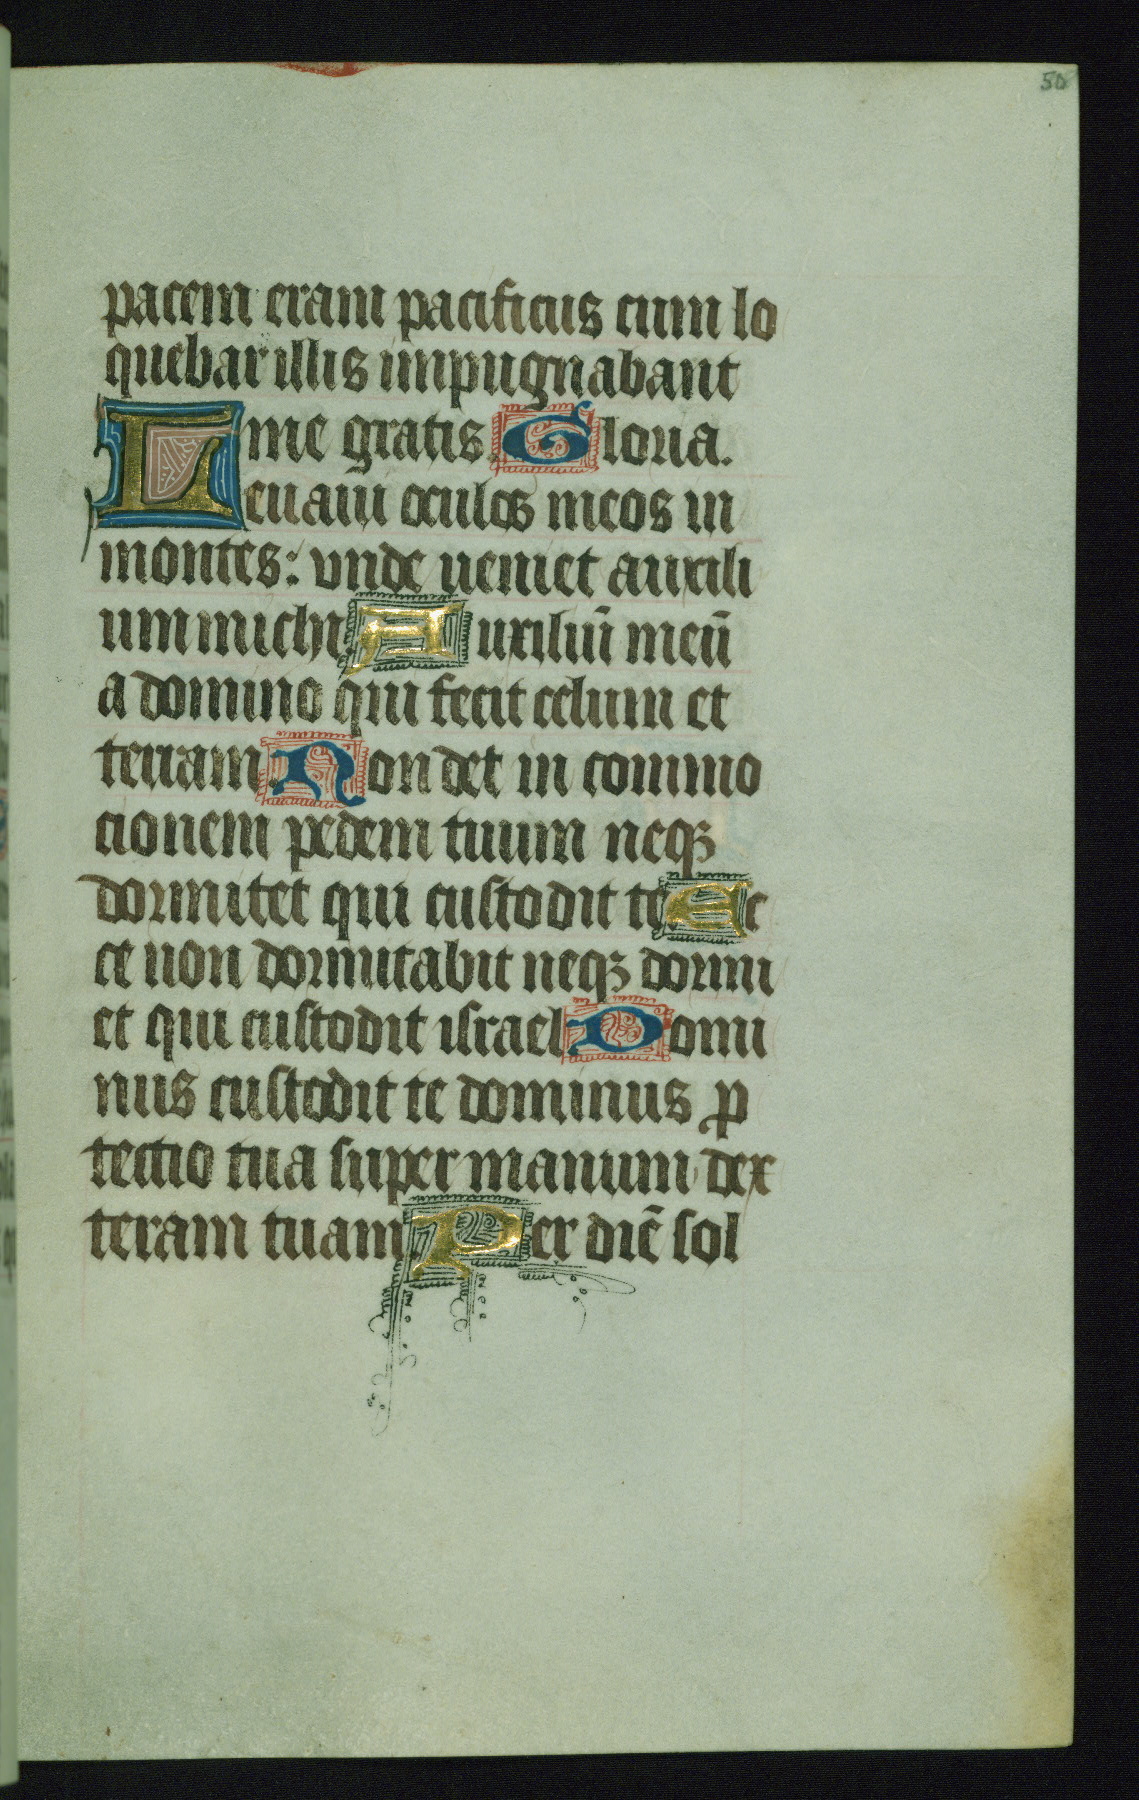 50
pacem eram pacificus cum lo
quebar illis inpugnabant
me gratis. Gloria.
Leuaui oculos meos in
montes: vnde ueniet auxili
um michi. Auxiliū meū
a domino qui fecit celum et
terram. Non det in commo
cionem pedem tuum neqꝫ
dormitet qui custodit te. Ec
ce non dormitabit neqꝫ dormi
et qui custodit israel. Domi
nus custodit te dominus ꝓ
tectio tua super manum dex
teram tuam. Per diē sol